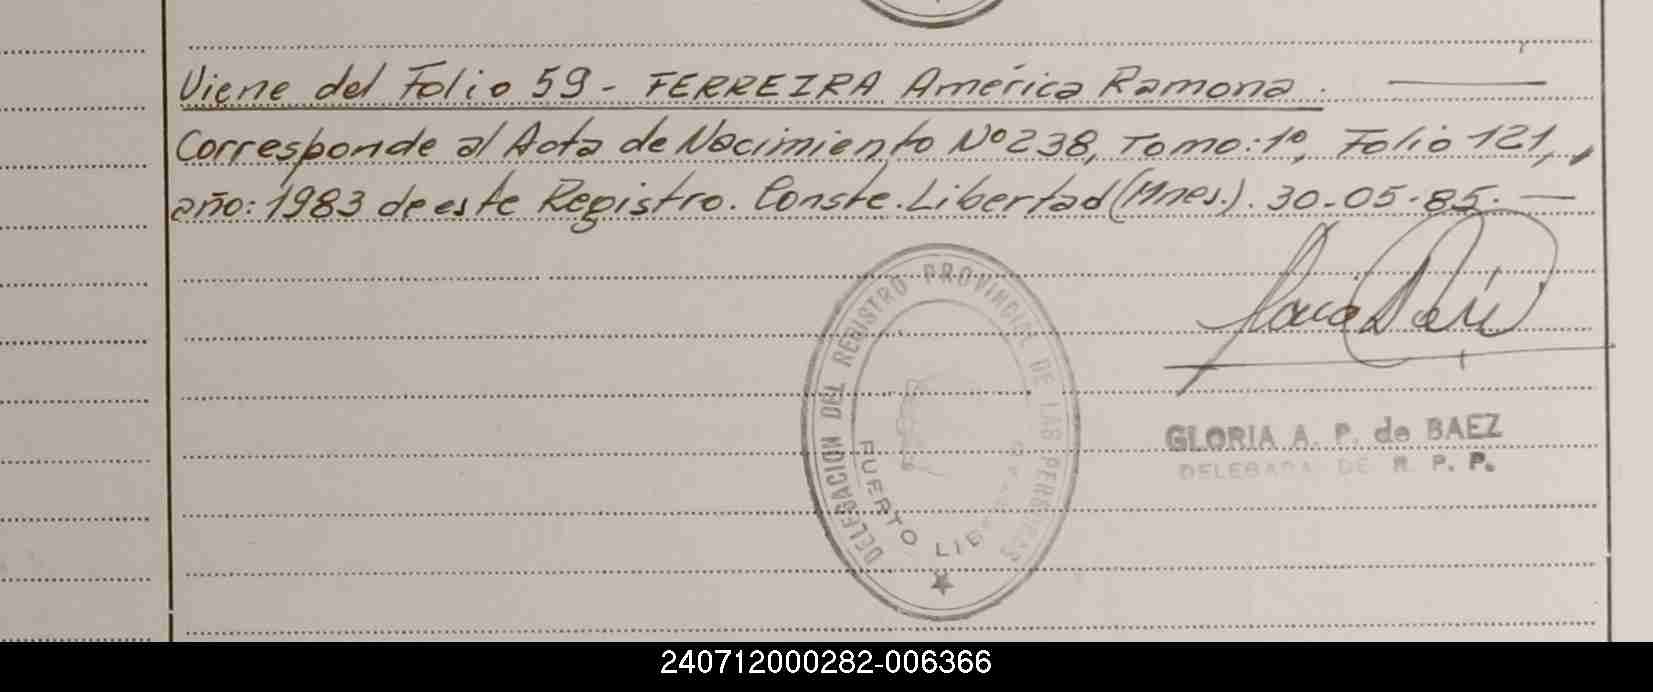 Viene del Folio 59 - FERREIRA América Ramona.
Corresponde al Acta de Nacimiento Nº 238, Tomo: 1º, Folio 121,
año: 1983 de este Registro. Conste. Libertad (Mnes.). 30-05-85.-
DELEGACION DEL REGISTRO PROVINCIAL DE LAS PERSONAS
PUERTO LIBERTAD
GLORIA A. P. de BAEZ
DELEGADA DE R. P. P.
240712000282-006366